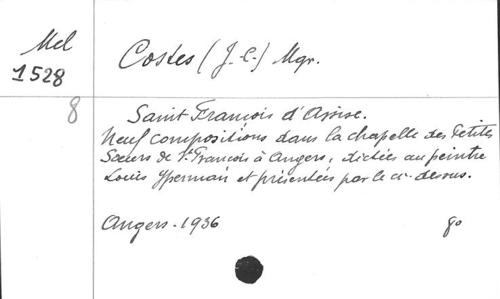 Mel
1528
8
Costes (J.-C.) Mgr.
Saint François d'Assise.
Neuf compositions dans la chapelle des Petites
Sœurs de St François à Angers, dictées au peintre
Louis Ypermain et présentées par le ci-dessus.
Angers - 1936
8o